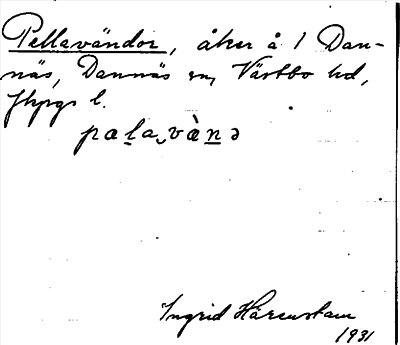 Pellavändor, åker å 1 Dan-
näs, Dannäs sn, Västbo hd,
Jkpgs l.
pæla vànə
Ingrid Hårenstam
1931